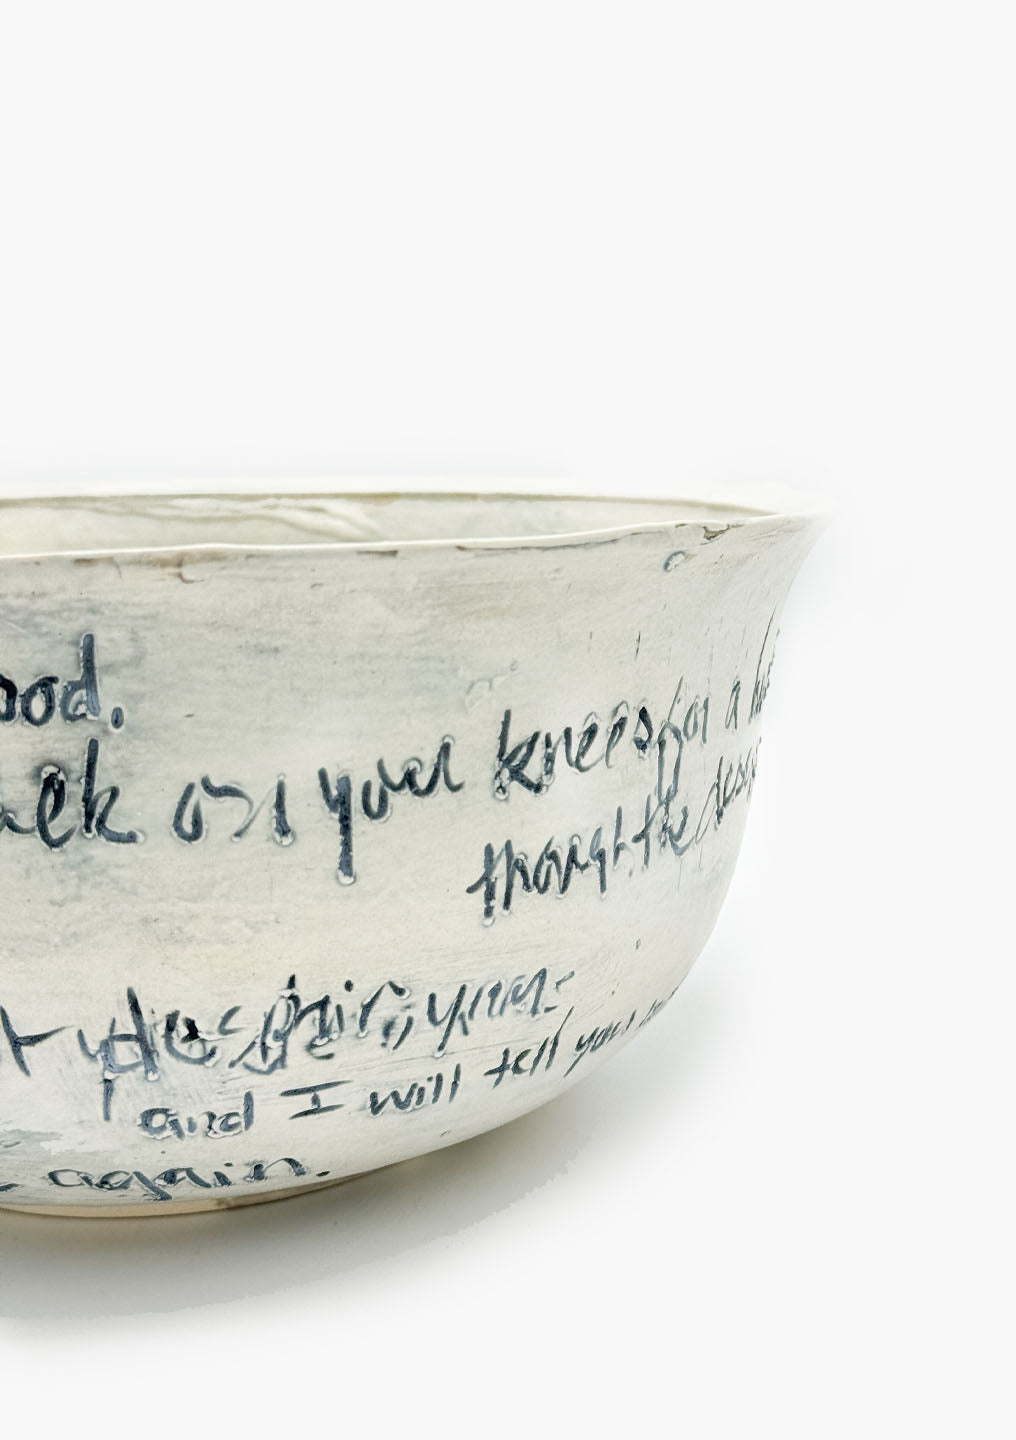 ood.
on your knees for a
though the
despair, yours
and I will tell you
again.